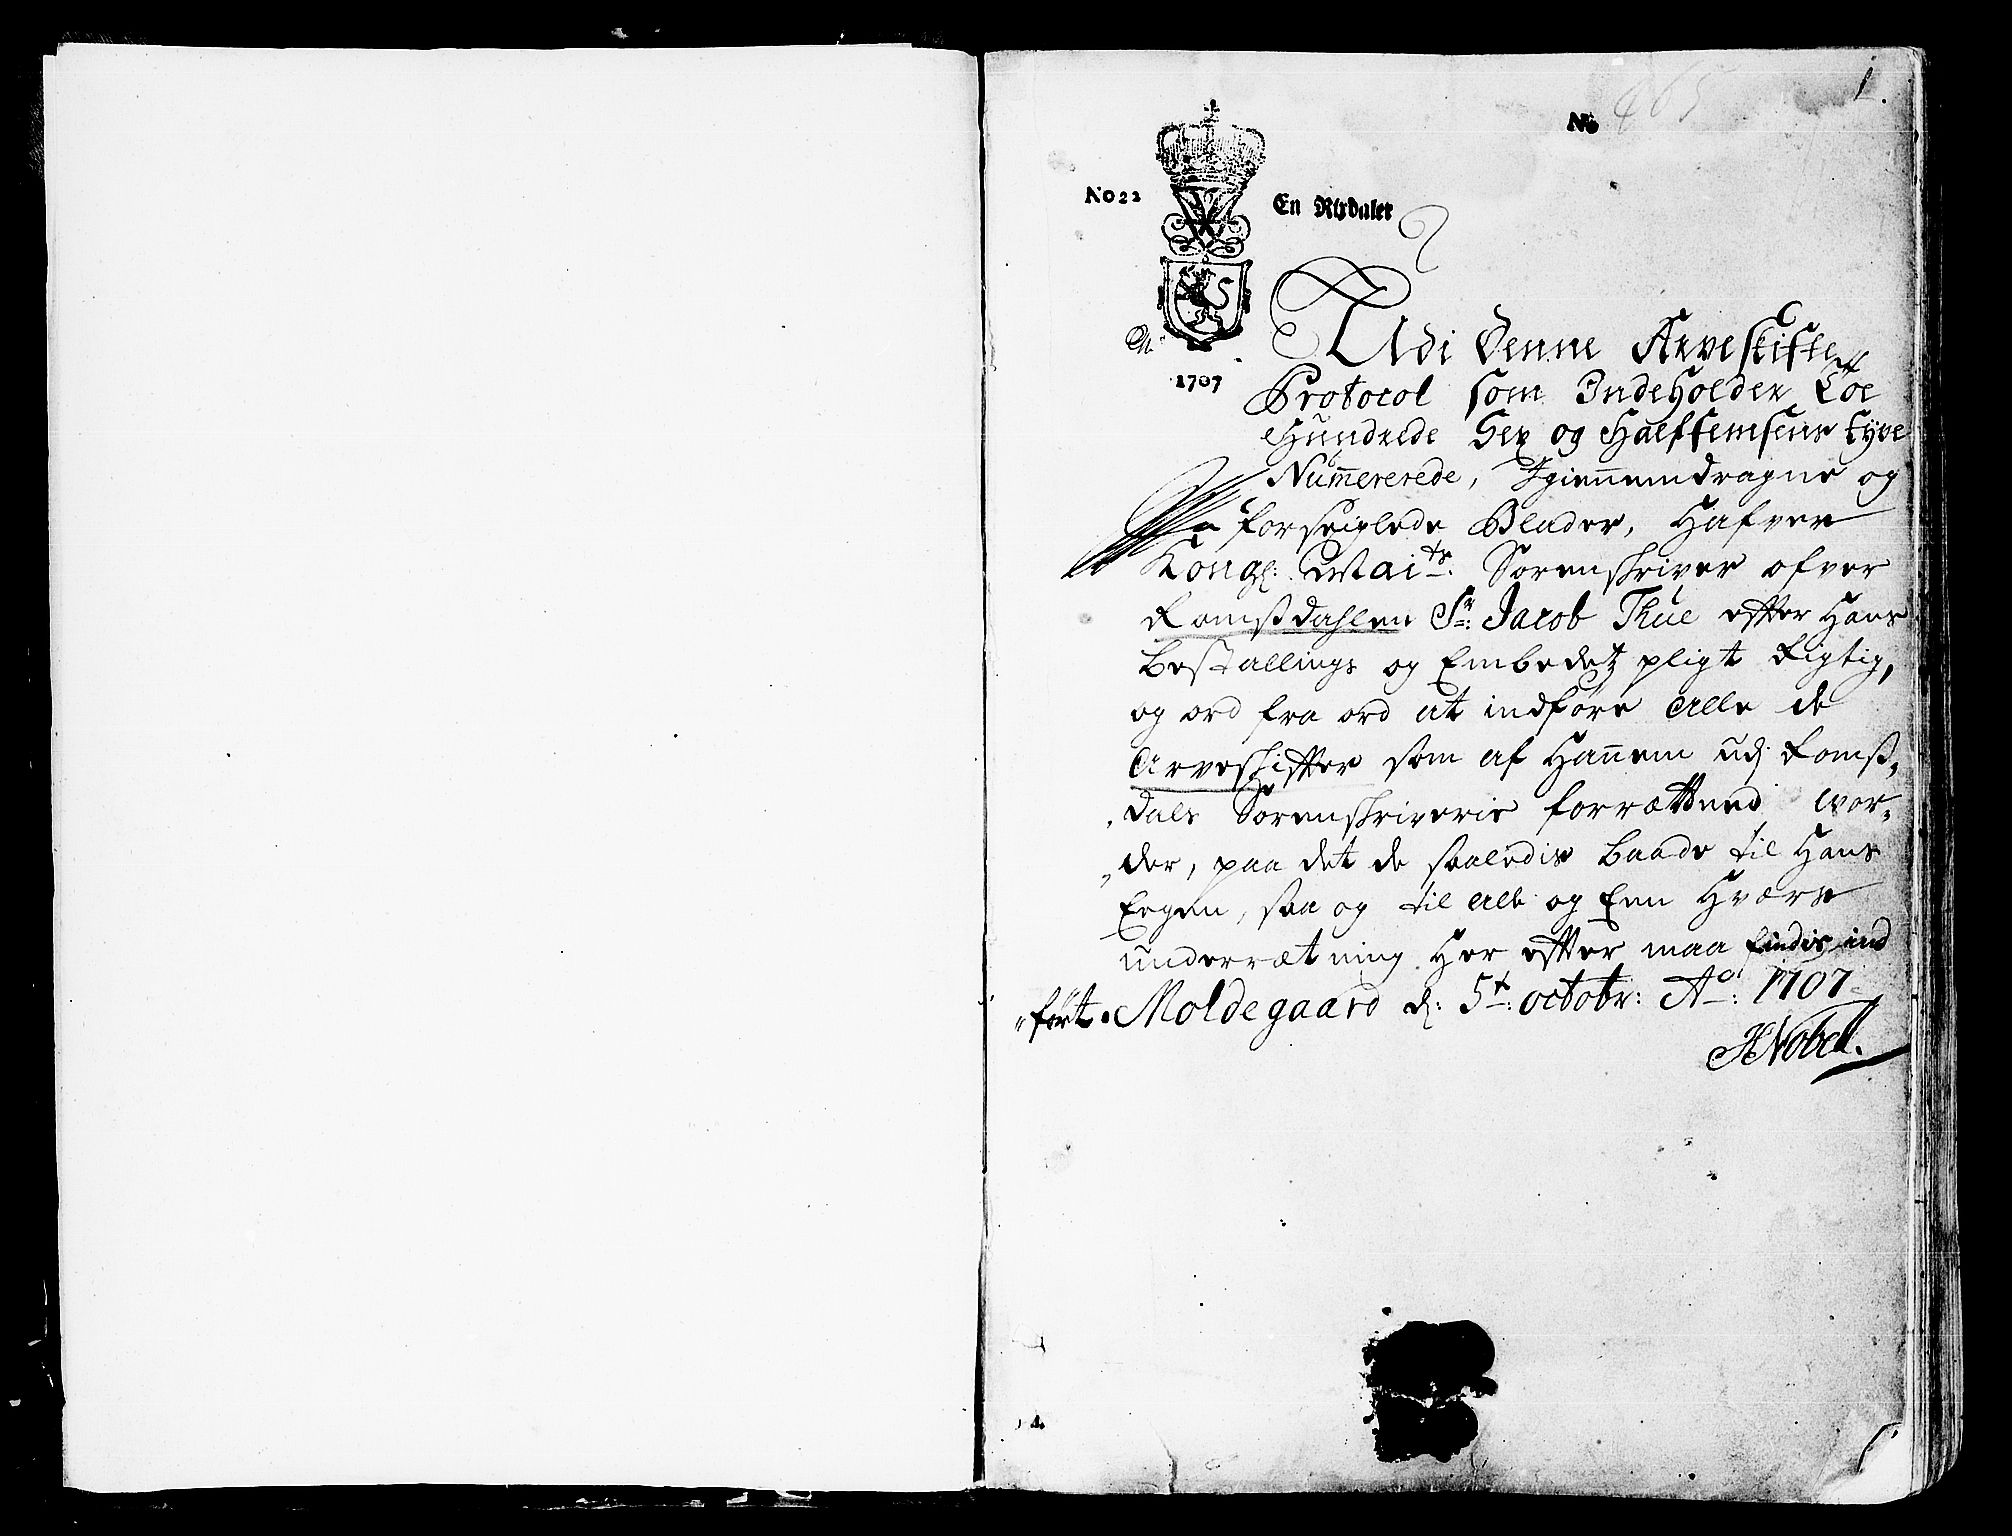 1.
No 465
No 22
En Rixdaler
1707
Udi denne Arveskifte
Protocol som Indeholder Toe
Hundrede Sex og Halffemsens tyve
Nummererede, Igiennemdragne og
forseiglede Blader, Hafver
Kongl: Maits: Sorenskriver ofver
Romsdahlen Sr: Jacob Thue efter Hans
bestallings og Embedetz pligt Rigtig,
og ord fra ord at indføre alle de
Arveskifter som af Hannem udj Roms,
dals Sorenskriverie forrættend wor,
der, paa det de saaledis baade til Hans
Eegen, saa og til all og Een Hværs
underrætning Her efter maa findis ind
ført. Moldegaard d: 5t: octobr: Ao: 1707
HNobell.